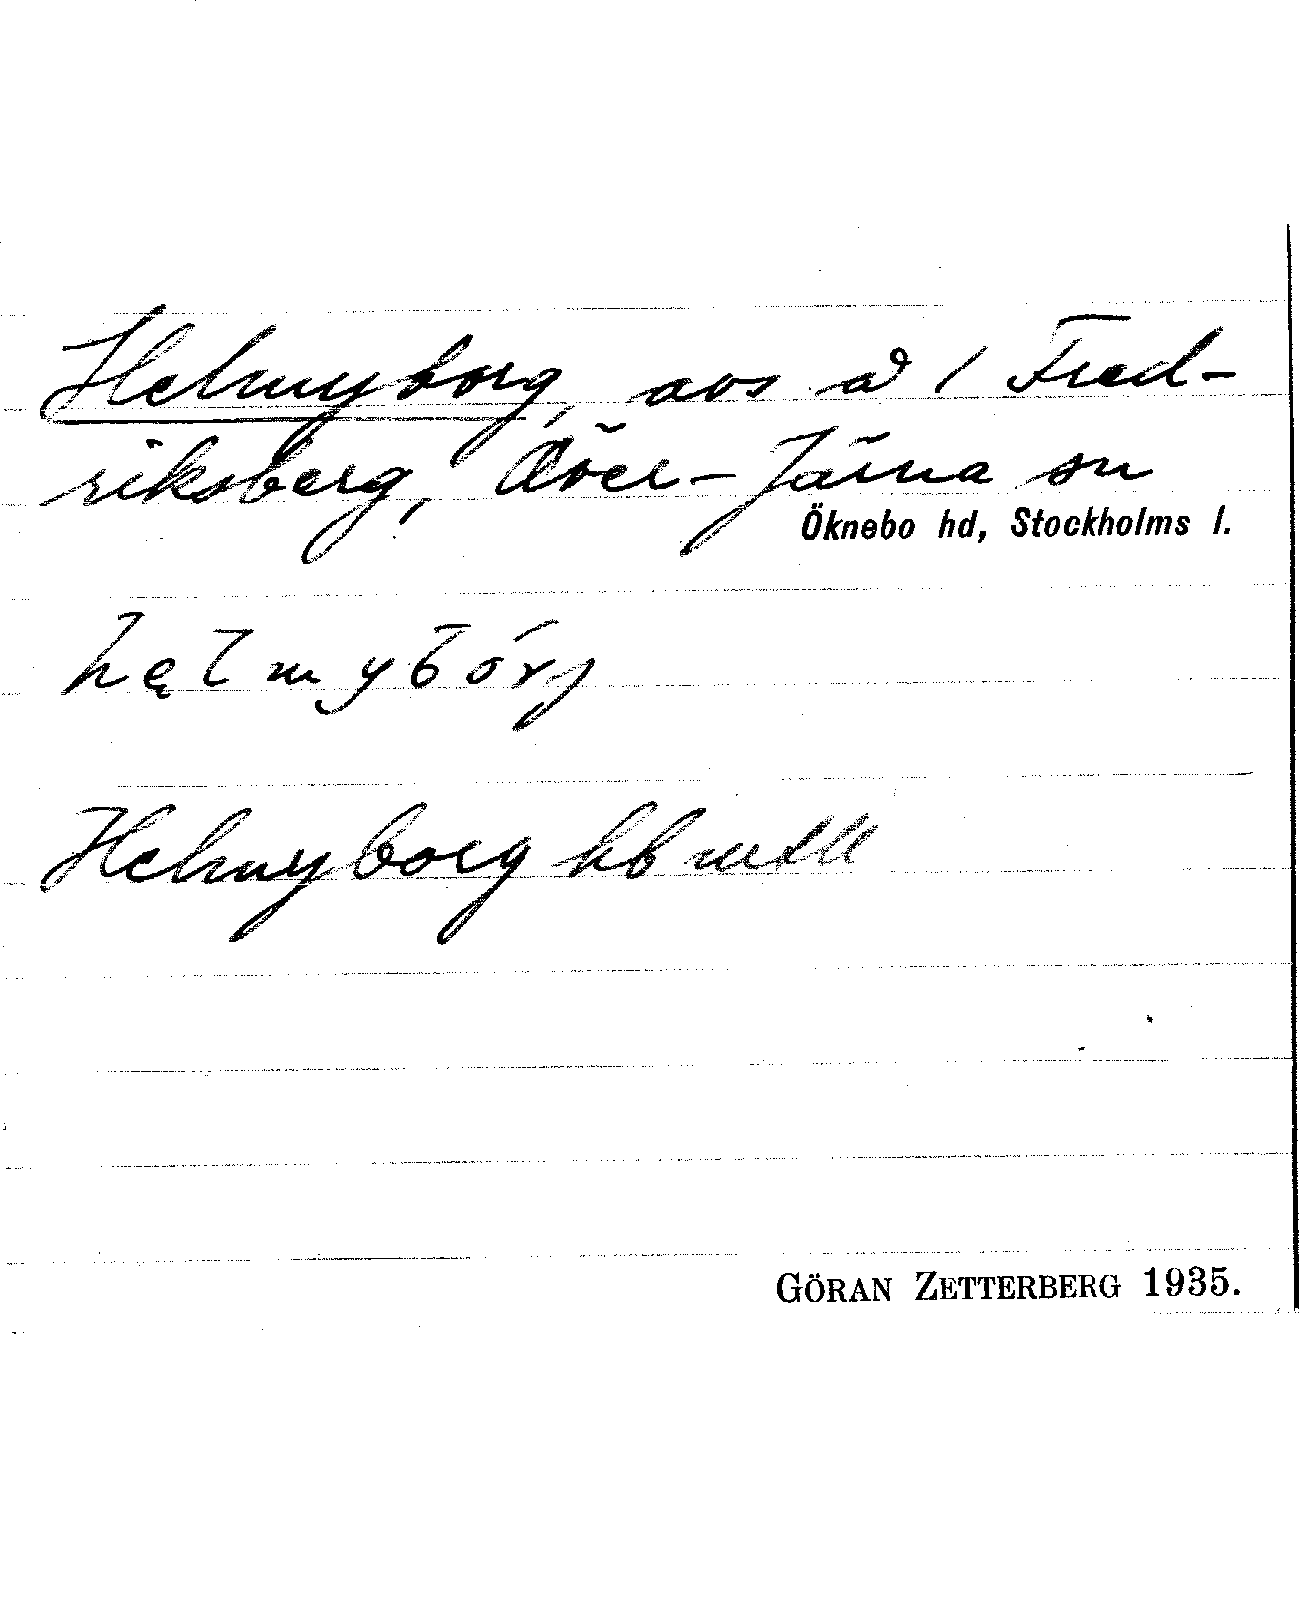 Helmyborg, avs å 1 Fred-
riksberg, Över-Järna sn
Öknebo hd, Stockholms l.
hęlmybórj
Helmyborg hb mtll
GÖRAN ZETTERBERG 1935.